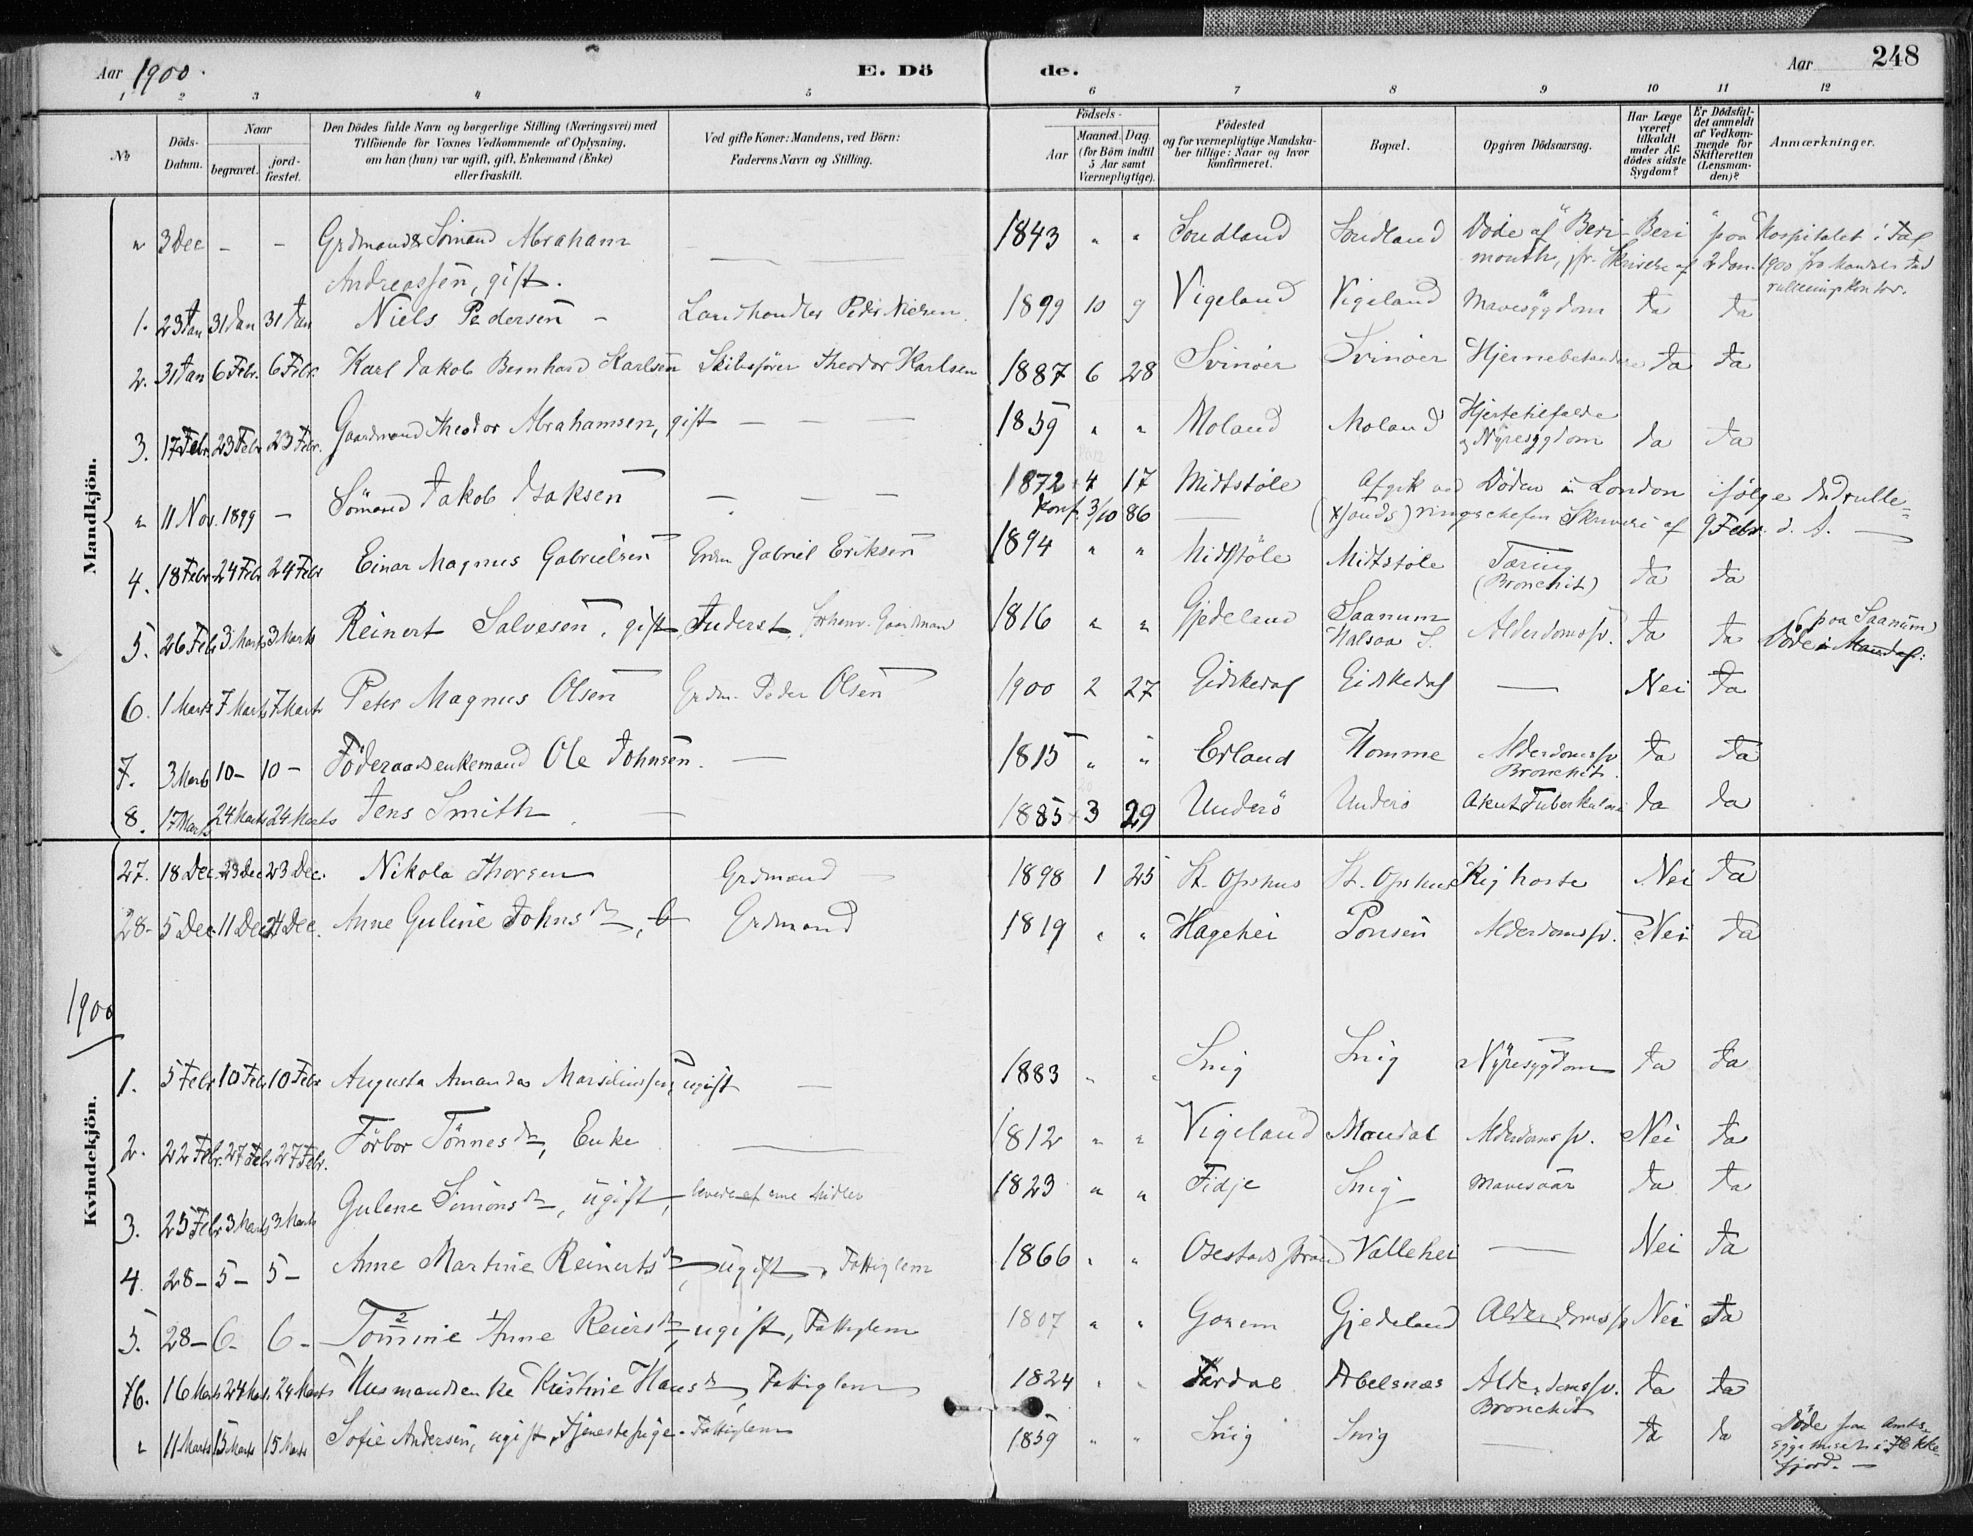 Aar 1900. E. Dö de. Aar 248
1 2 3 4 5 6 7 8 9 10 11 12
No
Döds-Datum.
Naar
begravet. jord-fæstet.
Den Dödes fulde Navn og borgerlige Stilling (Næringsvei) med
Tilföiende for Voxnes Vedkommende af Oplysning,
om han (hun) var ugift, gift, Enkemand (Enke)
eller fraskilt.
Ved gifte Koner: Mandens, ved Börn:
Faderens Navn og Stilling.
Födsels-
Aar
Maaned. Dag.
(for Börn indtil
5 Aar samt
Værnepligtige).
Födested
og for værnepligtige Mandska-
ber tillige: Naar og hvor
konfirmeret.
Bopæl.
Opgiven Dödsaarsag.
Har Læge
været
tilkaldt
under Af-
dödes sidste
Sygdom?
Er Dödsfal-
det anmeldt
af Vedkom-
mende for
Skifteretten
(Lensman-
den)?
Anmærkninger.
Mandkjön.
" 3 Dec - - Grdmand & Sömand Abraham — 1843 " " Soudland Soudland Döde af "Beri-Beri" paa Hospitalet i Fal
Andreassen, gift. mouth, jfr. Skrivelse af 2 Jan. 1900 fra Mandals Ind
rulleringskontor.
1. 23 Jan 31 Jan 31 Jan Niels Pedersen - Landhandler Peder Nielsen 1899 10 9 Vigeland Vigeland Mavesygdom Ja Ja
2. 31 Jan 6 Febr. 6 Febr. Karl Jakob Bernhard Karlsen Skibsförer Theodor Karlsen 1887 6 28 Svinöer Svinöer Ja Ja
3. 17 Febr. 23 Febr 23 Febr. Gaardmand Theodor Abrahamsen, gift — — — 1859 " " Moland Moland Hjertetilfælde
& Nyresygdom Ja Ja
" 11 Nov. 1899 — Sömand Jakob Isaksen — — 1872 4 17 Midtstöle Afgik ved Döden in London ifölge Indrulle-
Konf. 3/10 86 — ringschefen Skrivelse af 9 Febr. d. A. —
4. 18 Febr. 24 Febr 24 Febr Einar Magnus Gabrielsen Grdm. Gabriel Eriksen 1894 " " Midtstöle Midtstöle Tæring
(Bronchit) Ja Ja
5. 26 Feb 3 Marts 3 Marts Reinert Salvesen, gift, Inderst, forhenv. Gaardman 1816 " " Gjedeland Saanum
Halsaa S. Alderdomssv. Ja Ja (paa Saanum)
Döde i Mandal.
6. 1 Marts 7 Marts 7 Marts Peter Magnus Olsen Grdm. Peder Olsen 1900 2 27 Gidskedal Gidskedal — Nei Ja
7. 3 Marts 10 - 10 - Föderaadsenkemand Ole Johnsen. — 1815 " " Erland Homme Alderdomssv
Bronchit. Ja Ja
8. 17 Marts 24 Marts 24 Marts Jens Smith — 1885 3 29 Underö Underö Akut Tuberkulose Ja Ja
Kvindekjön.
27. 18 Dec. 23 Dec 23 Dec. Nikola Thorsen Grdmand — 1898 1 25 St. Opshus St. Opshus Kighoste Nei Ja
28- 5 Dec 11 Dec 24 Dec. Anne Guline Johnsdr, Grdmand 1819 " " Hagehei Ponsen Alderdomssv. Nei Ja
1900
1. 5 Febr 10 Febr 10 Febr Augusta Amanda Marseliussen, ugift — 1883 " " Snig Snig Nyresygdom Ja Ja
2. 22 Febr. 27 Febr 27 Febr. Förbor Tönnesdr, Enke — 1812 " " Vigeland Mandal Alderdomssv. Nei Ja
3. 25 Febr 3 Marts 3 Marts Gulene Simonsdr, ugift, levede af egne Midler 1823 " " Fidje Snig Mavesaar Ja Ja
4. 28 - 5 - 5 - Anne Martine Reinertsdr, ugift, Fattiglem 1866 " " Osestadstrand Vallehei — Nei Ja
5. 28 - 6 - 6 - Tomine Anne Reiersdr, ugift, Fattiglem 1807 " " Gjedeland Alderdomssv Nei Ja
6. 16 Marts 24 Mar. 24 Marts Husmandsenke Kristine Hansdr, Fattiglem 1824 " " Abelsnæs Alderdomssv.
Bronchit Ja Ja
" 11 Marts 15 Marts 15 Marts Sofie Andersen, ugift, Tjenestepige. Fattiglem 1859 " " Snig Snig — Ja Ja Döde paa Amts-
sygehuset i Flekke-
fjord. —